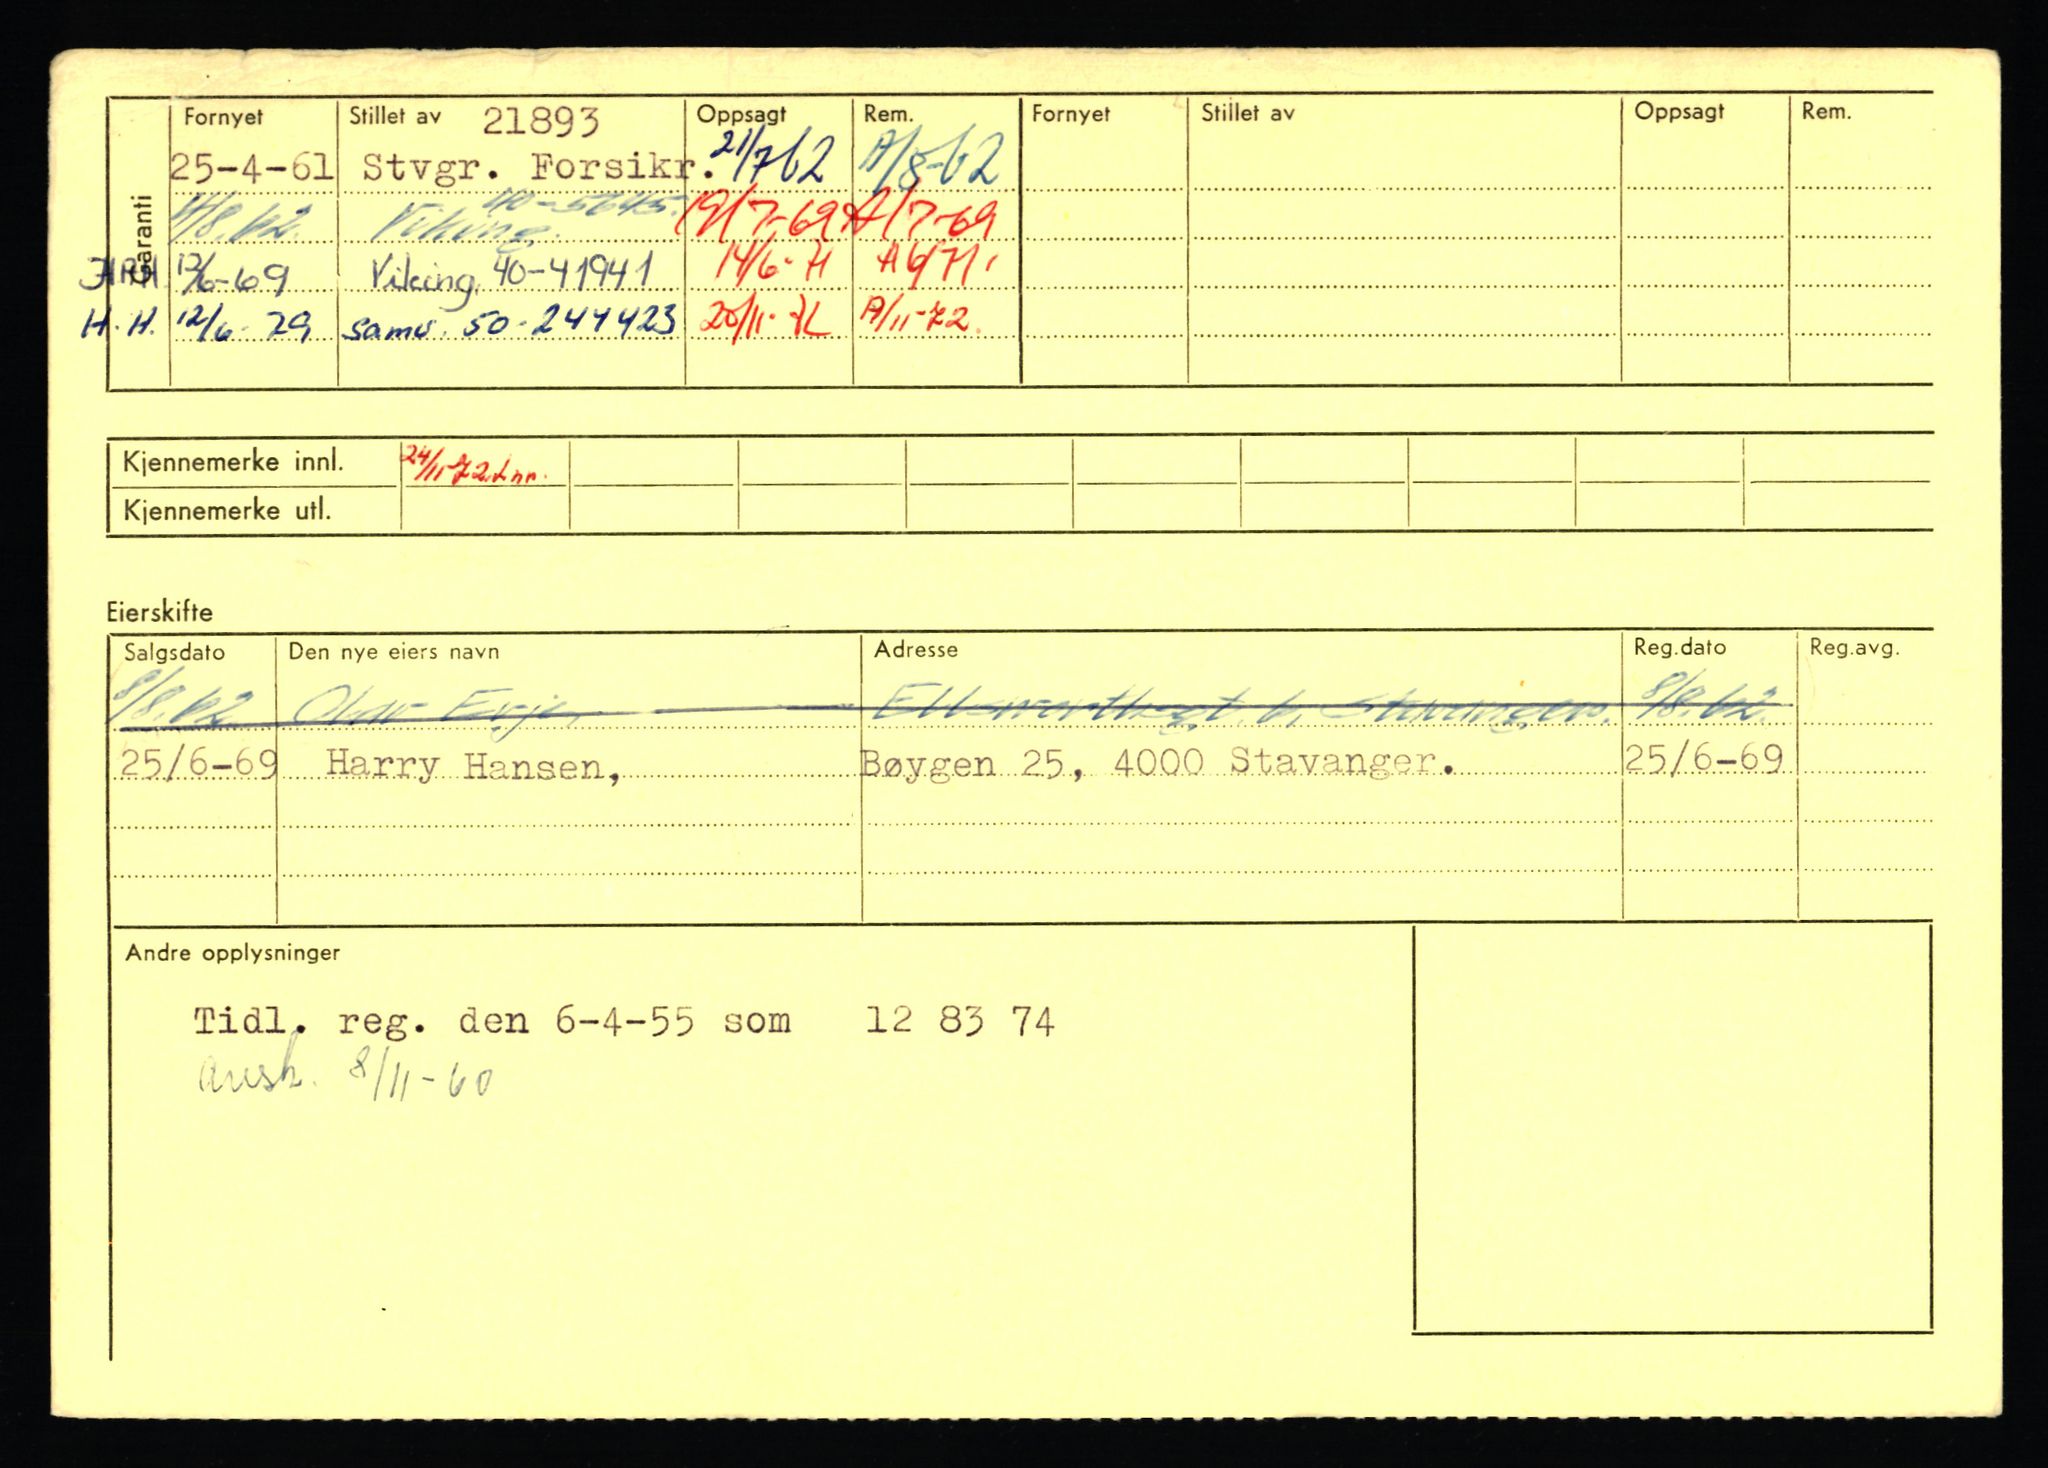 Garanti
Fornyet Stillet av 21893 Oppsagt Rem. Fornyet Stillet av Oppsagt Rem.
25-4-61 Stvgr. Forsikr. 21/7 62 A/8-62
40-5645.
/8.62. Viking. 19/7-69 A/7-69
12/6-69 Viking. 40-41941 14/6- A 6/71
H.H. 12/6- 79 samv. 50-244423 20/11- A/11-72.
Kjennemerke innl. 24/11-72
Kjennemerke utl.
Eierskifte
Salgsdato Den nye eiers navn Adresse Reg.dato Reg.avg.
8/8.62 Olav Evje, 6, Stavanger. 8/8.62.
25/6-69 Harry Hansen, Bøygen 25, 4000 Stavanger. 25/6-69
Andre opplysninger
Tidl. reg. den 6-4-55 som 12 83 74
avsk. 8/11-60